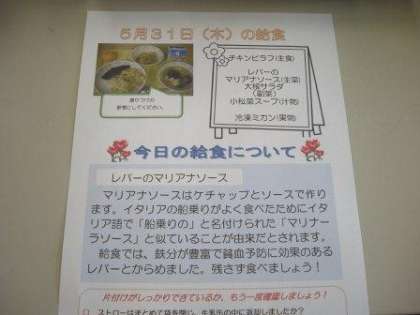 5月31日(木)の給食
チキンピラフ(主食)
レバーの
マリアナソース(主菜)
大根サラダ
(副菜)
小松菜スープ(汁物)
冷凍ミカン(果物)
盛りつけの
参考にしてください。
今日の給食について
レバーのマリアナソース
マリアナソースはケチャップとソースで作り
ます。イタリアの船乗りがよく食べたためにイタ
リア語で「船乗りの」と名付けられた「マリナー
ラソース」と似ていることが由来だとされます。
給食では、鉄分が豊富で貧血予防に効果のある
レバーとからめました。残さず食べましょう!
片付けがしっかりできているか、もう一度確認しましょう!